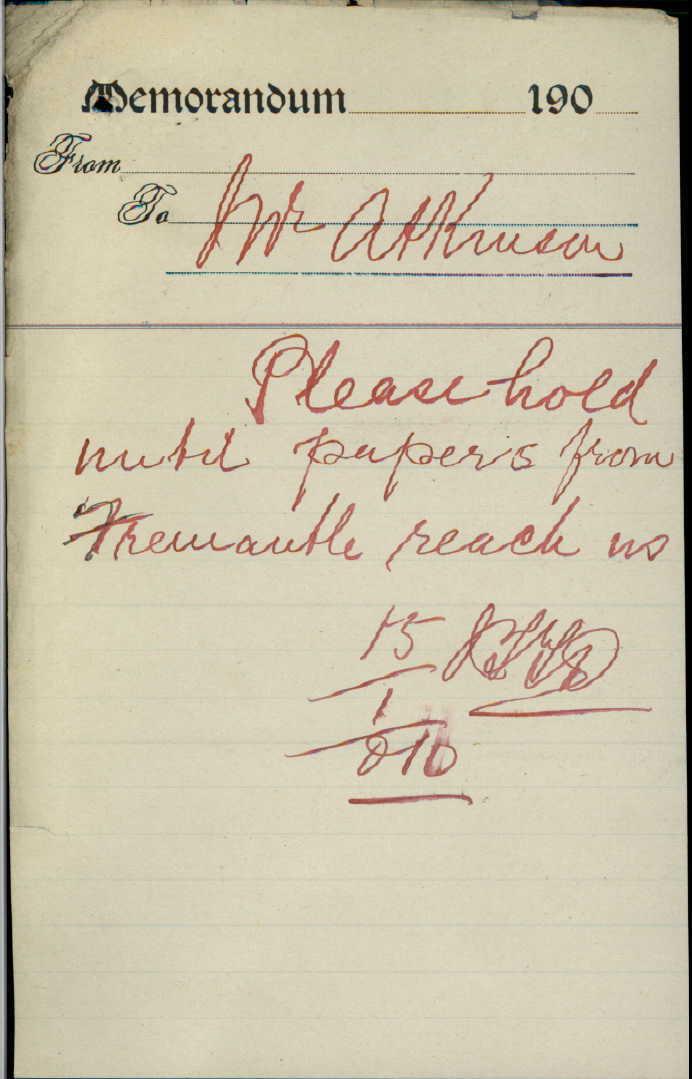 Memorandum 190
From
To Mr Atkinson
Please hold
until papers from
Fremantle reach us
15
1